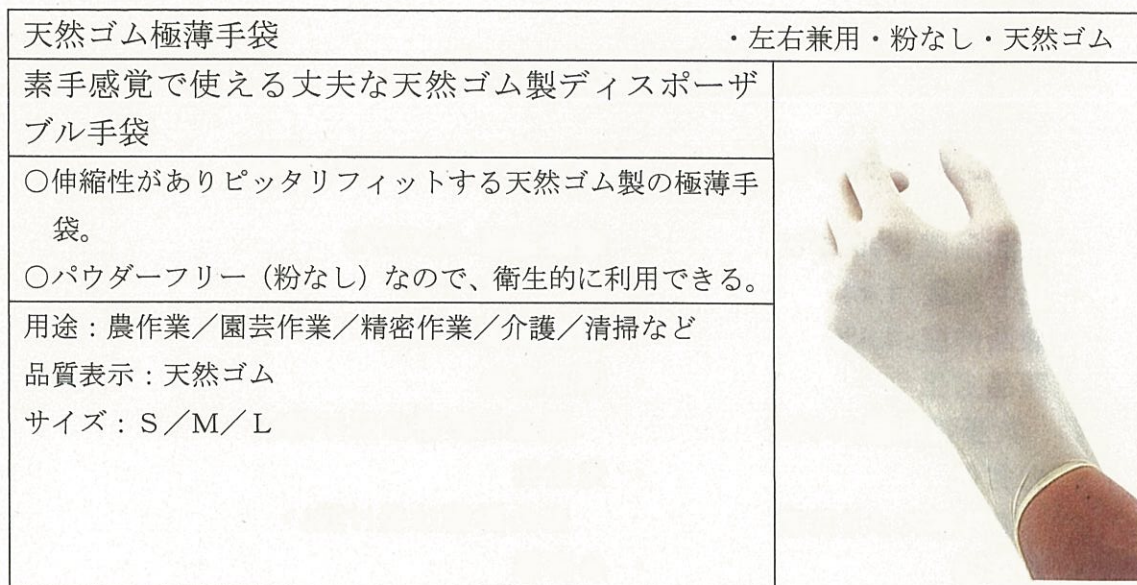 天然ゴム極薄手袋
・左右兼用・粉なし・天然ゴム
素手感覚で使える丈夫な天然ゴム製ディスポーザ
ブル手袋
○伸縮性がありピッタリフィットする天然ゴム製の極薄手
袋。
○パウダーフリー（粉なし）なので、衛生的に利用できる。
用途：農作業／園芸作業／精密作業／介護／清掃など
品質表示：天然ゴム
サイズ：Ｓ／M／Ｌ